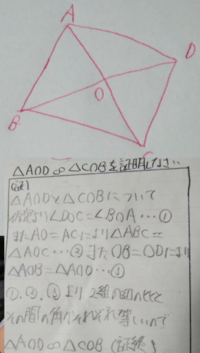 A
D
O
B
C
△AOD∽△COBを証明しなさい
△AODと△COBについて
仮定より∠DOC=∠BOA…①
またAO=ACにより△ABC≡
△AOC…②またOB=ODにより
△AOB=△AOD…
①,②,③より2組の辺の比と
その間の角がそれぞれ等しいので
△AOD∽△COB